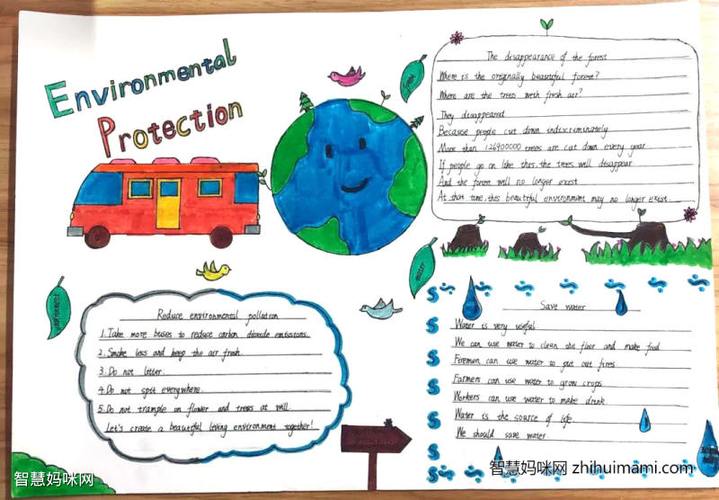 Environmental
Protection
The disappearance of the forest
Where is the originally beautiful forest?
Where are the trees with fresh air?
They disappeared
Because people cut down indiscriminately
More than 126900000 trees are cut down every year
If people go on like this, the trees will disappear
And the forest will no longer exist
At that time, this beautiful environment may no longer exist
Reduce environmental pollution
1. Take more buses to reduce carbon dioxide emissions.
2. Smoke less and keep the air fresh.
3. Do not litter.
4. Do not spit everywhere.
5. Do not trample on flower and trees at will.
Let's create a beautiful living environment together!
Save water
Water is very useful
We can use water to clean the floor and make food
Firemen can use water to put out fires
Farmers can use water to grow crops
Workers can use water to make drink
Water is the source of life
We should save water
智慧妈咪网
智慧妈咪网 zhihuimami.com